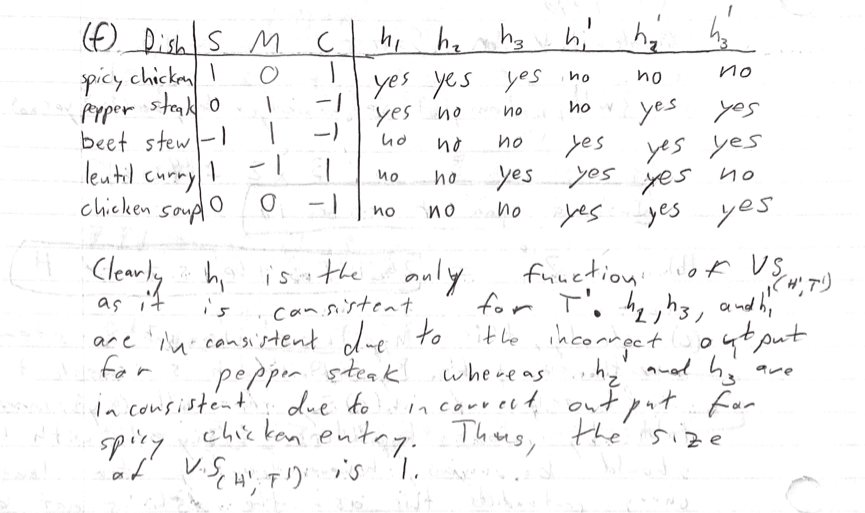 (f) Dish S M C h₁ h₂ h₃ h₁' h₂' h₃'
spicy chicken 1 0 1 yes yes yes no no no
pepper steak 0 1 -1 yes no no no yes yes
beet stew -1 1 -1 no no no yes yes yes
leutil curry 1 -1 1 no no yes yes yes no
chicken soup 0 0 -1 no no no yes yes yes
Clearly h₁ is the only function of VS(H',T')
as it is consistent for T'. h₂, h₃, and h₁'
are inconsistent due to the incorrect output
for pepper steak whereas h₂' and h₃' are
inconsistent due to incorrect output for
spicy chicken entry. Thus, the size
of V.S(H',T') is 1.